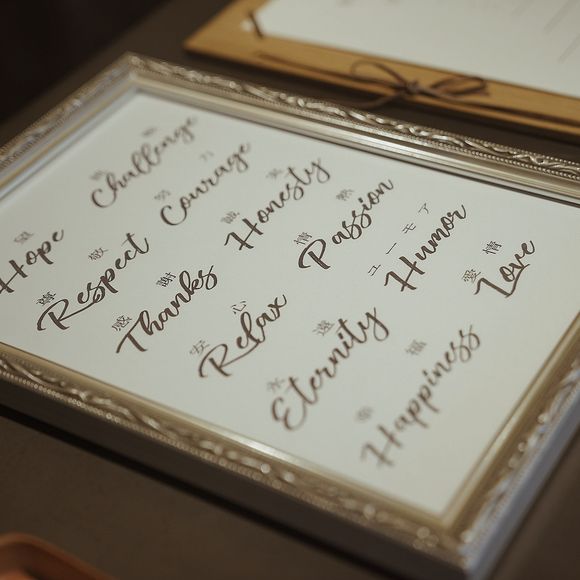 望
Hope Challenge
尊敬 力
Respect Courage
感謝 誠実
Thanks Honesty
安心 情熱
Relax Passion
永遠 ユーモア
Eternity Humor
幸福 愛情
Happiness Love